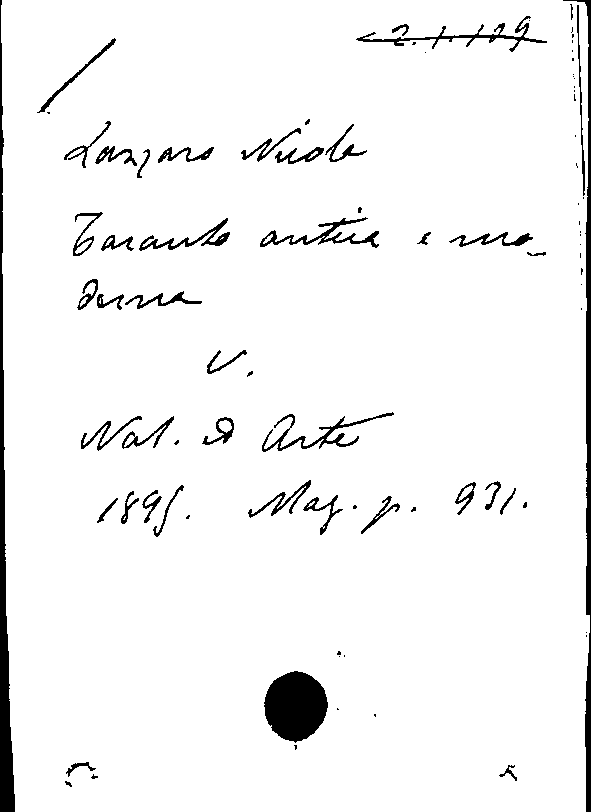 2.1.109
Lanzaro Nicola
Taranto antica e mo-
derna
V.
Nat. ed Arte
1895. Mag. p. 931.